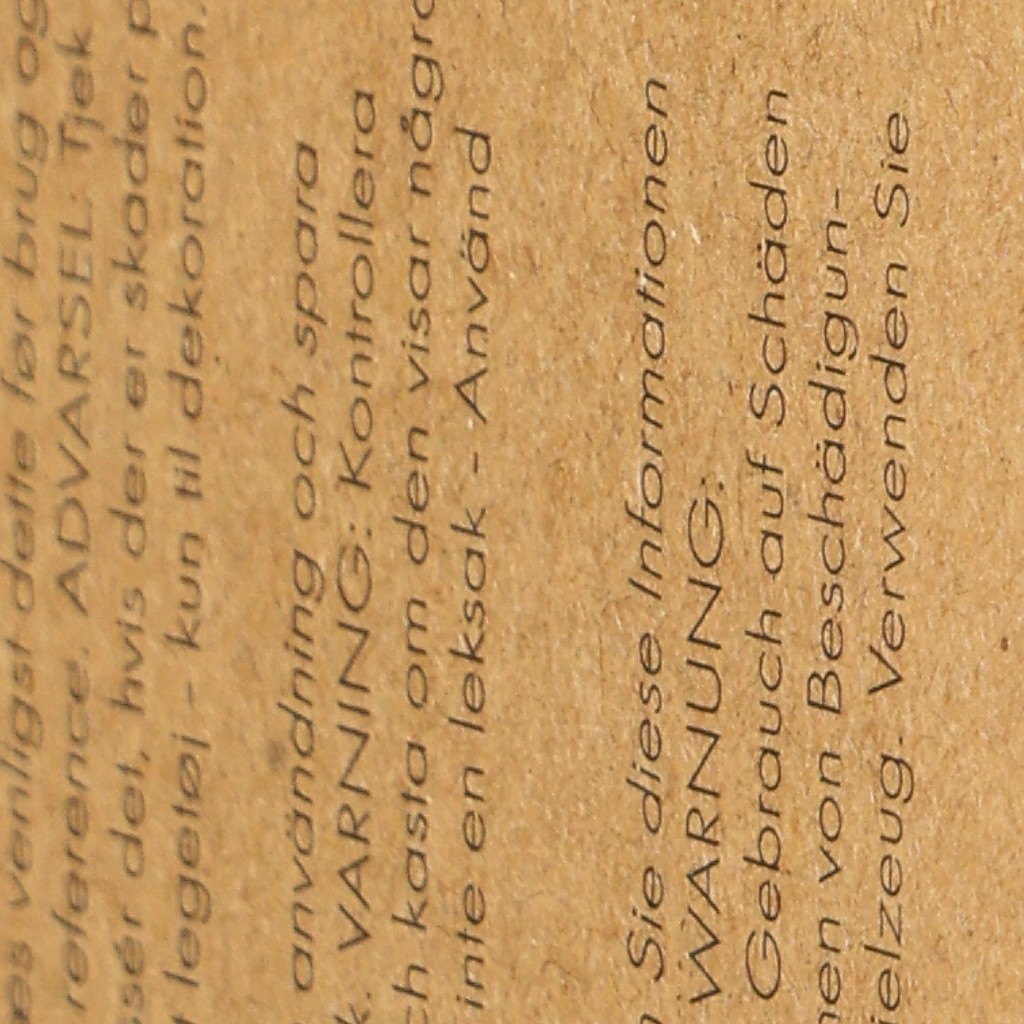 es venligst dette før brug og
reference. ADVARSEL: Tjek
sér det, hvis der er skader p
t legetøj - kun til dekoration.
användning och spara
k. VARNING: Kontrollera
ch kasta om den visar någr
inte en leksak - Använd
n Sie diese Informationen
WARNUNG:
Gebrauch auf Schäden
nen von Beschädigun-
ielzeug. Verwenden Sie